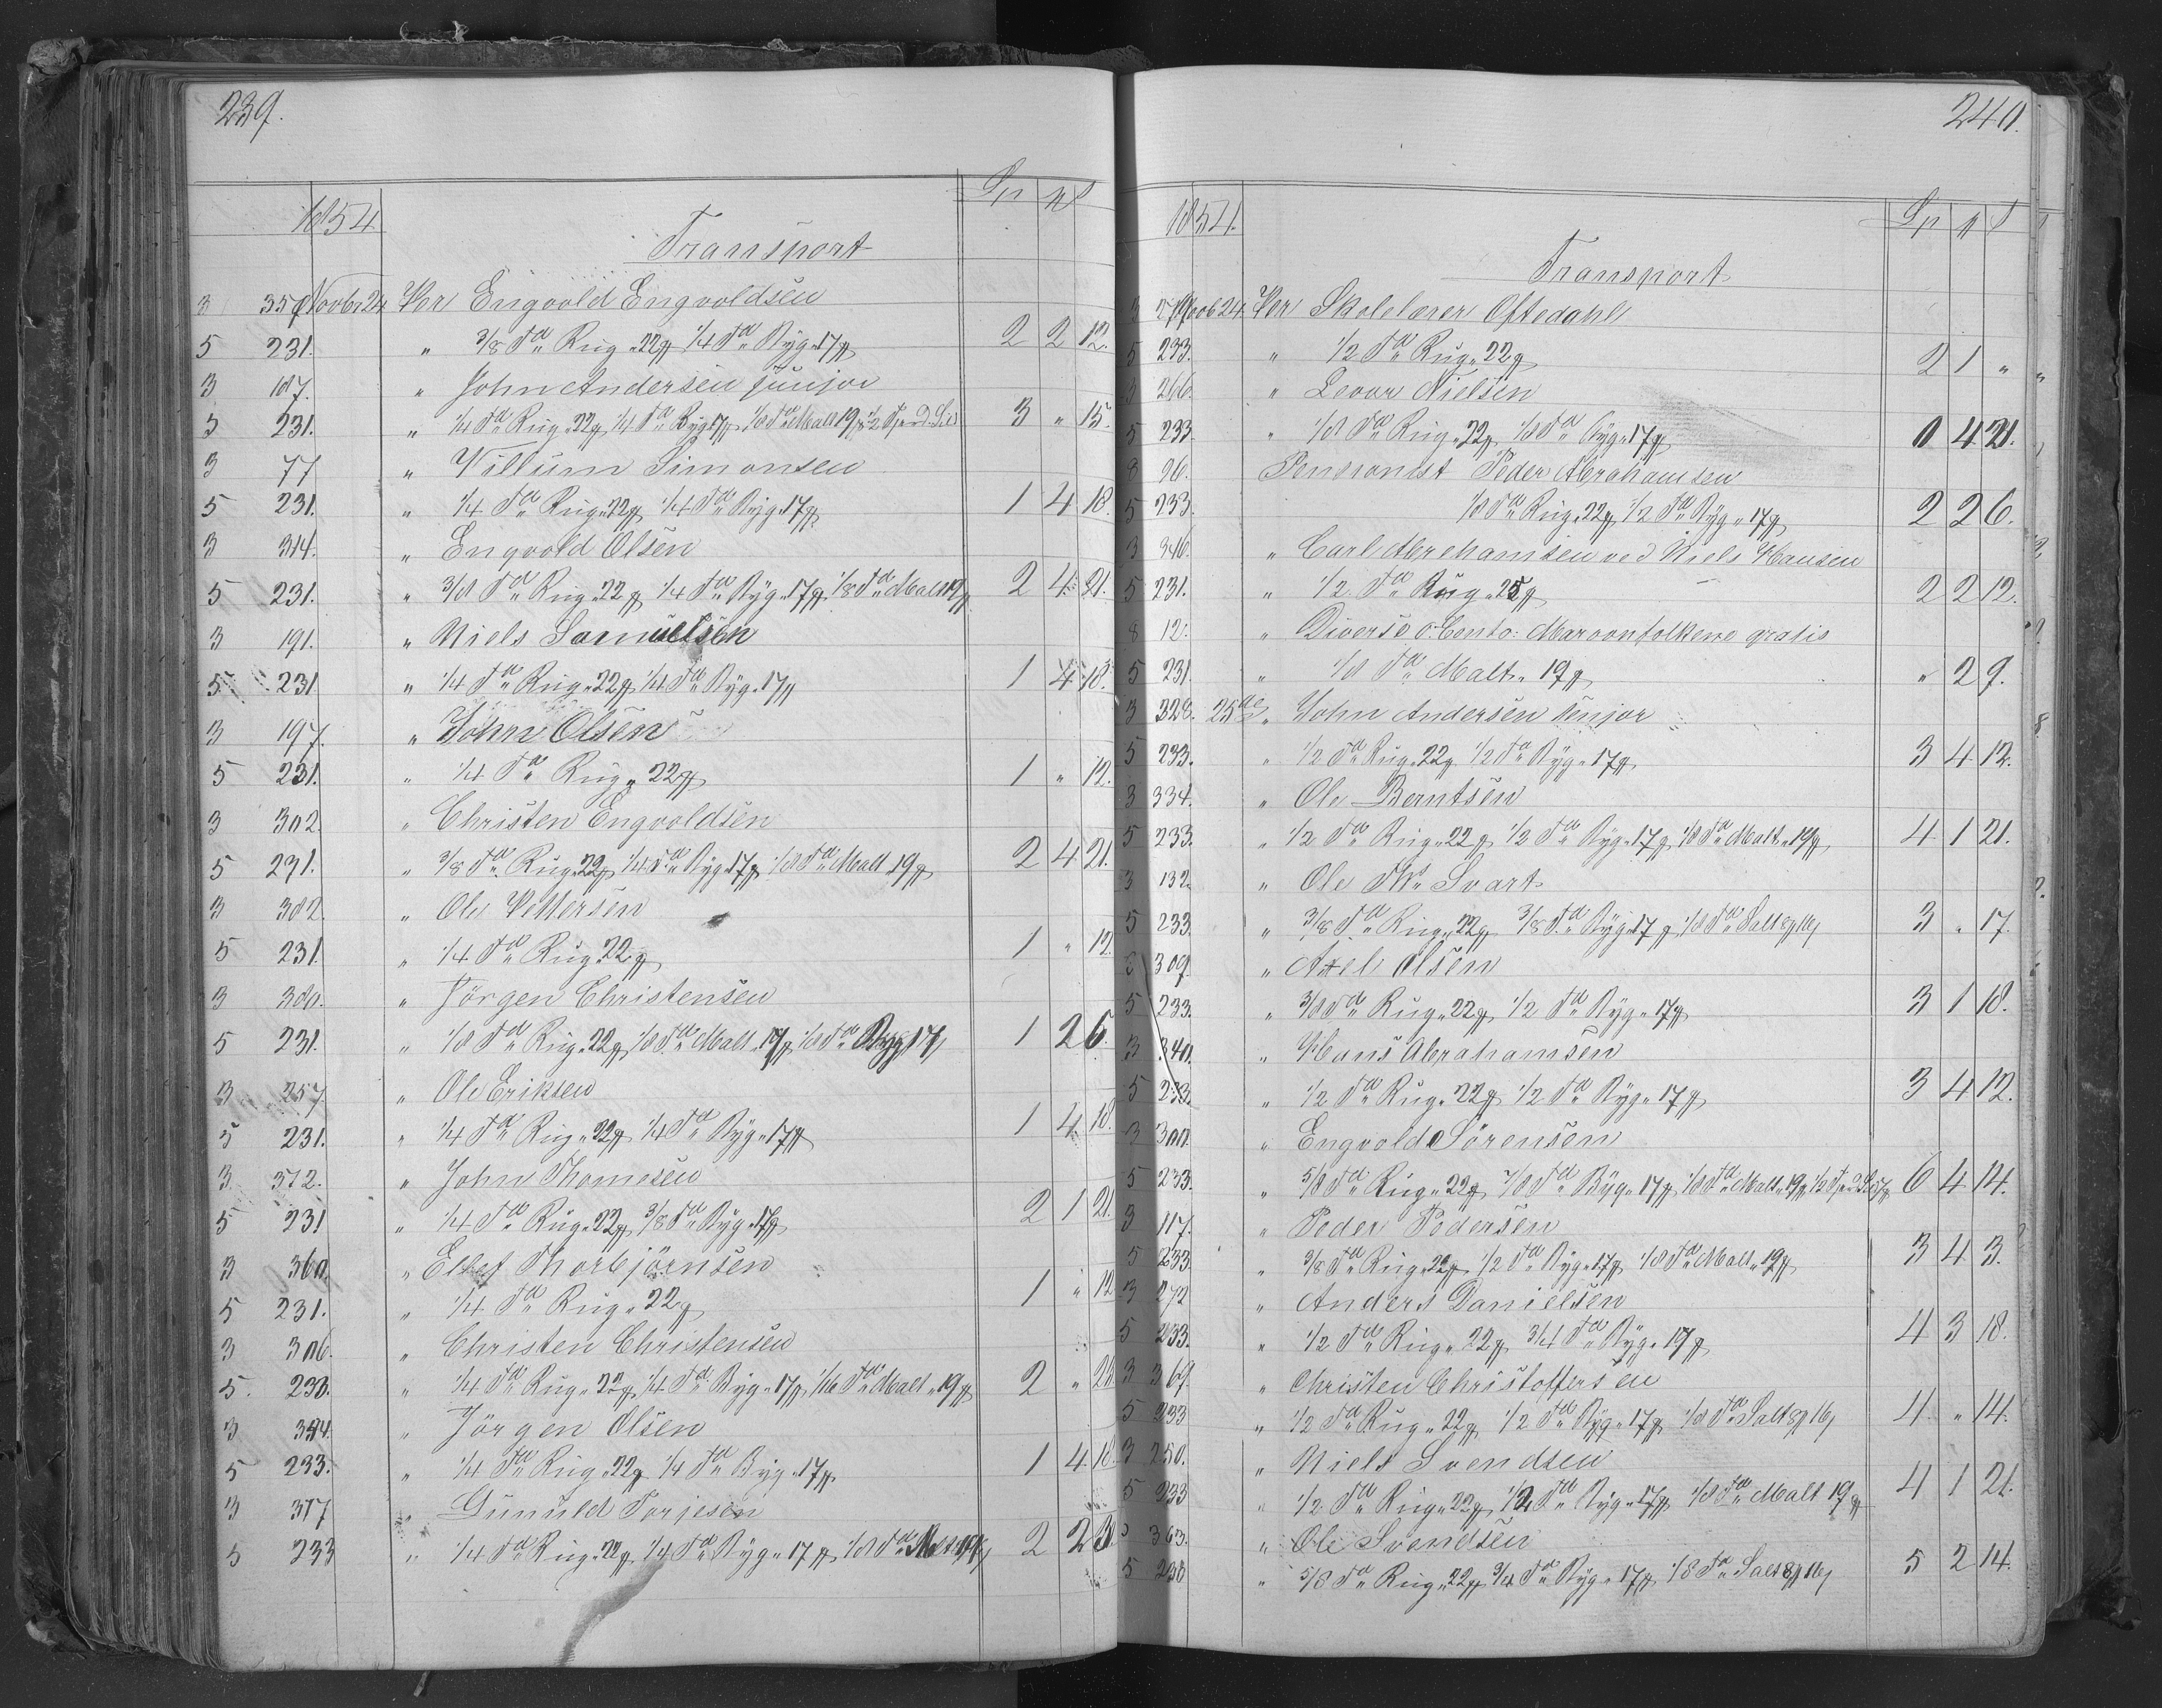 239.
1854. Sp ₰ ß
Transport
3 350 Novbr 24 Per Engvold Engvoldsen
5 231. " 3/8 Tde Rug " 22 ₰ 1/4 Tde Byg " 17 ₰ 2 2 12.
3 187. " John Andersen junior
5 231. " 1/4 Tde Rug " 22 ₰ 1/4 Tde Byg 17 ₰ 1/8 Tde Malt 19 ₰ 1/2 3 " 15.
3 77 " Villum Simonsen
5 231. " 1/4 Tde Rug " 22 ₰ 1/4 Tde Byg " 17 ₰ 1 4 18.
3 314. " Engvold Olsen
5 231. " 3/8 Tde Rug " 22 ₰ 1/4 Tde Byg " 17 ₰ 1/8 Tde Malt 19 ₰ 2 4 21.
3 191. " Niels Samuelsen
5 231 " 1/4 Tde Rug " 22 ₰ 1/4 Tde Byg " 17 ₰ 1 4 18.
3 197. " John Olsen
5 231. " 1/4 Tde Rug " 22 ₰ 1 " 12.
3 302. " Christen Engvoldsen
5 231. " 3/8 Tde Rug " 22 ₰ 1/4 Tde Byg " 17 ₰ 1/8 Tde Malt 19 ₰ 2 4 21.
3 382. " Ole Pettersen
5 231. " 1/4 Tde Rug 22 ₰ 1 " 12.
3 380. " Jörgen Christensen
5 231. " 1/8 Tde Rug " 22 ₰ 1/8 Tde Malt 19 ₰ 1/8 Tde Byg 17 ₰ 1 2 6.
3 257 " Ole Eriksen
5 231. " 1/4 Tde Rug " 22 ₰ 1/4 Tde Byg " 17 ₰ 1 4 18.
3 372. " John Thomesen
5 231 " 1/4 Tde Rug " 22 ₰ 3/8 Tde Byg " 17 ₰ 2 1 21.
3 360. " Ellef Thorbjörnsen
5 231. " 1/4 Tde Rug " 22 ₰ 1 " 12
3 306. " Christen Christensen
5. 233. " 1/4 Tde Rug " 22 ₰ 1/4 Tde Byg " 17 ₰ 1/16 Tde Malt " 19 ₰ 2 "
3 " Jörgen Olsen
5 233. " 1/4 Tde Rug " 22 ₰ 1/4 Tde Byg " 17 ₰ 1 4 18.
3 317 " Gunuld Torjesen
5 233 " 1/4 Tde Rug " 22 ₰ 1/4 Tde Byg " 17 ₰ 1/8 Tde Malt 19 ₰ 2 2 3.
240.
1854. Sp ₰ ß
Transport
3 Novb 24. Per Skolelærer Oftedahl
5 233. " 1/2 Tde Rug " 22 ₰ 2 1 "
3 266. " Levor Nielsen
5 233 " 1/8 Tde Rug " 22 ₰ 1/8 Tde Byg " 17 ₰ 0 4 21.
3 96. Pensionist Peder Abrahamsen
5 233. 1/8 Tde Rug " 22 ₰ 1/2 Tde Byg " 17 ₰ 2 2 6.
3 346. " Carl Abrehamsen ved Niels Hansen
5 231. " 1/2 Tde Rug " 25 ₰ 2 2 12.
8 12. " Diverse Conto: gratis
5 231. " 1/8 Tde Malt " 19 ₰ " 2 9.
3 328. 25de " John Andersen senjor
5 233. " 1/2 Tde Rug " 22 ₰ 1/2 Tde Byg " 17 ₰ 3 4 12.
3 334. " Ole Berntsen
5 233. " 1/2 Tde Rug " 22 ₰ 1/2 Tde Byg " 17 ₰ 1/8 Tde Malt " 19 ₰ 4 1 21.
3 132. " Ole Ths Svart
5 233. " 3/8 Tde Rug " 22 ₰ 3/8 Tde Byg " 17 ₰ 1/8 Tde Salt 8 ₰ 16 ß 3 " 17.
3 309. " Axel Olsen
5 233. " 3/8 Tde Rug " 22 ₰ 1/2 Tde Byg " 17 ₰ 3 1 18.
3 340. " Hans Abrahamsen
5 233. " 1/2 Tde Rug " 22 ₰ 1/2 Tde Byg " 17 ₰ 3 4 12.
3 300. " Engvold Sörensen
5 233. " 5/8 Tde Rug " 22 ₰ 7/8 Tde Byg " 17 ₰ 1/8 Tde Malt " 19 ₰ 1/2 6 4 14.
3 117. " Peder Pedersen
5 233. " 3/8 Tde Rug " 22 ₰ 1/2 Tde Byg " 17 ₰ 1/8 Tde Malt " 19 ₰ 3 4 3.
3 272 " Anders Danielsen
5 233. " 1/2 Tde Rug " 22 ₰ 3/4 Tde Byg " 17 ₰ 4 3 18.
3 369. " Christen Christoffersen
5 233 " 1/2 Tde Rug " 22 ₰ 1/2 Tde Byg " 17 ₰ 1/8 Tde Salt 8 ₰ 16 ß 4 " 14.
3 250. " Niels Svendsen
5 233 " 1/2 Tde Rug " 22 ₰ 1/2 Tde Byg " 17 ₰ 1/8 Tde Malt 19 ₰ 4 1 21.
3 363. " Ole Svendsen
5 233 " 5/8 Tde Rug " 22 ₰ 3/4 Tde Byg " 17 ₰ 1/8 Tde Salt 8 ₰ 16 ß 5 2 14.